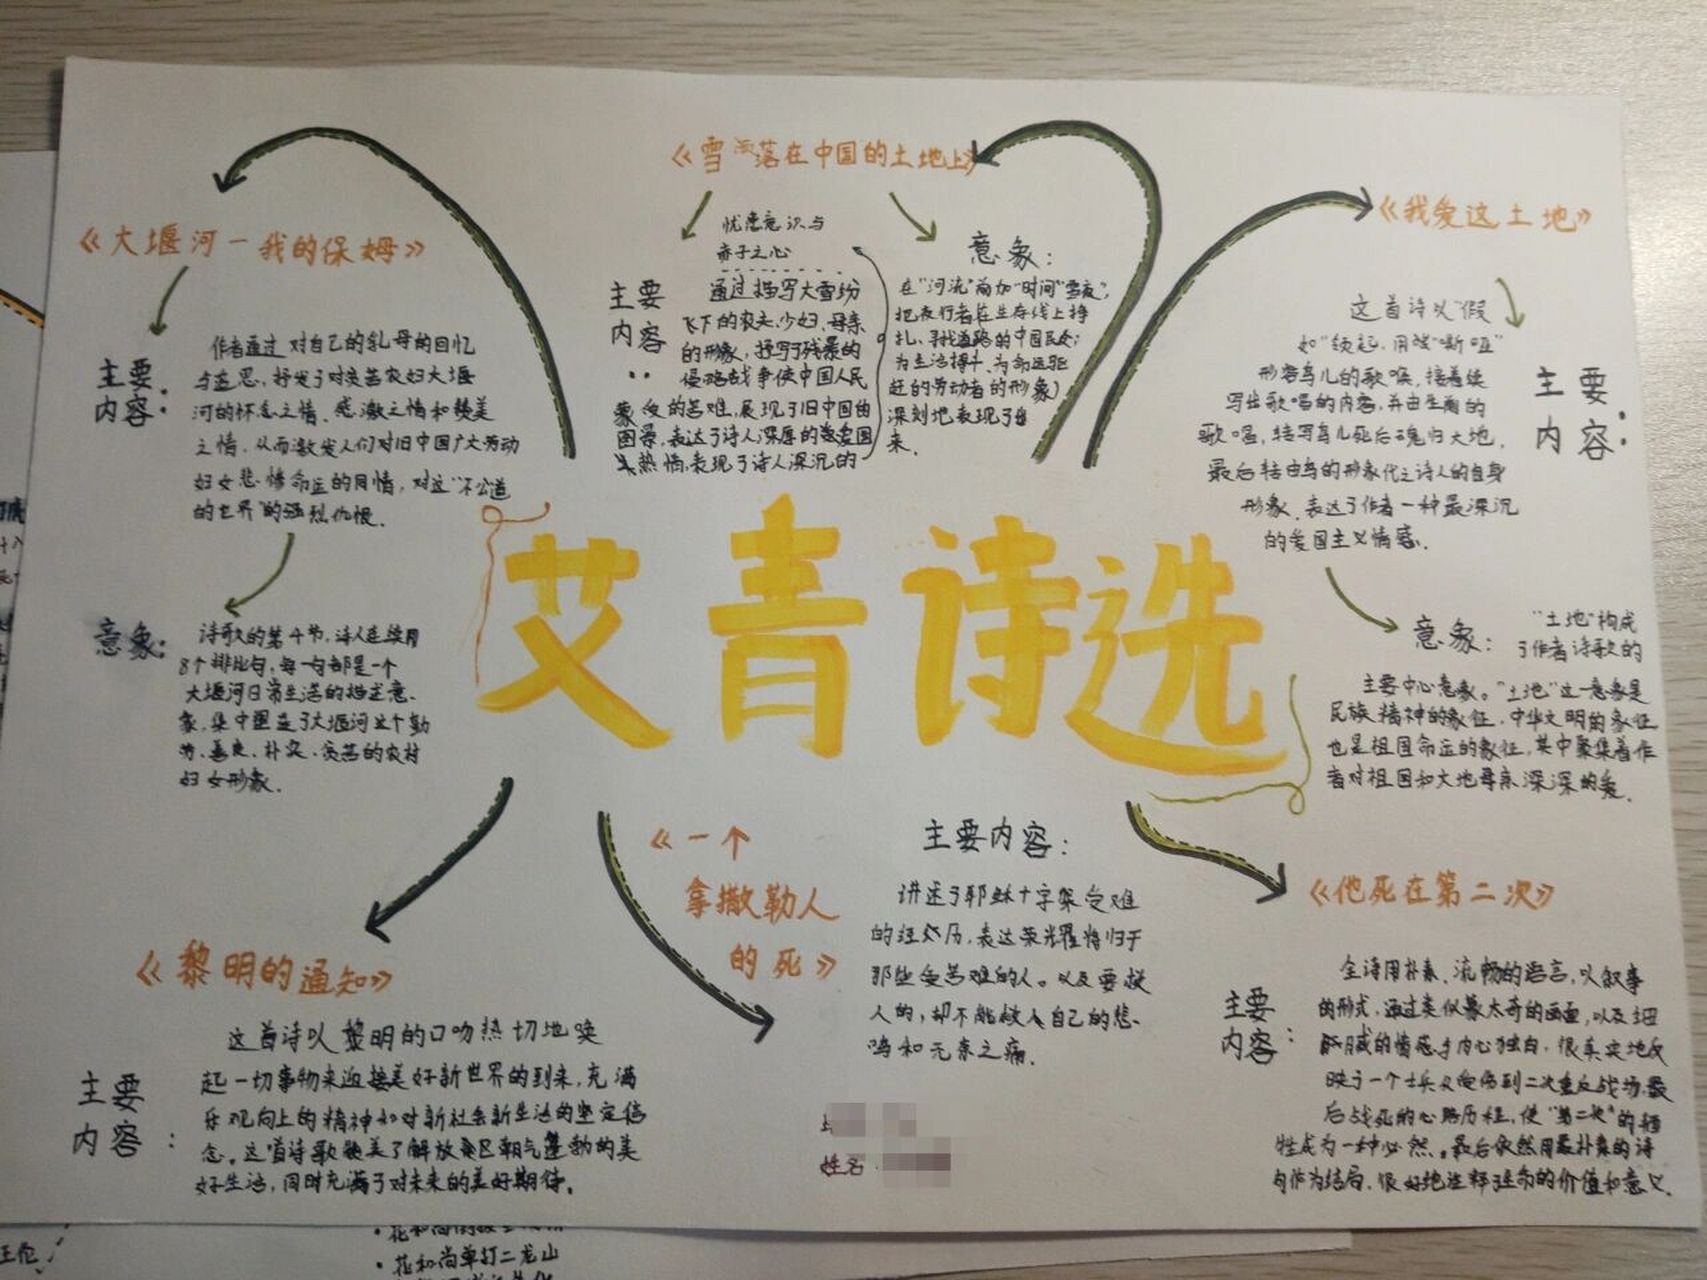 艾青诗选
《大堰河－我的保姆》
主要
内容：
作者通过对自己的乳母的回忆
与追思，抒发了对贫苦农妇大堰
河的怀念之情、感激之情和赞美
之情，从而激发人们对旧中国广大劳动
妇女悲惨命运的同情，对这“不公道
的世界”的强烈仇恨．
意象：
诗歌的第4节，诗人连续用
8个排比句，每一句都是一个
大堰河日常生活的描述意、
象，集中塑造了大堰河这个勤
劳、善良、朴实、贫苦的农村
妇女形象．
《雪落在中国的土地上》
忧患意识与
赤子之心
主要
内容
：
通过描写大雪纷
飞下的农夫、少妇、母亲
的形象，抒写了残暴的
侵略战争使中国人民
蒙受的苦难，展现了旧中国的
图景，表达了诗人深厚的爱国
热情，表现了诗人深沉的
意象：
在“河流”而加“时间”“雪夜”，
把夜行者在生存线上挣
扎、寻找道路的中国民众；
为生活搏斗、为命运驱
赶的劳动者的形象）
深刻地表现了出
来．
《我爱这土地》
主要
内容：
这首诗以“假
如”领起，用“嘶哑”
形容鸟儿的歌喉，接着续
写出歌唱的内容，并由生前的
歌唱，转写鸟儿死后魂归大地，
最后转由鸟的形象代之诗人的自身
形象，表达了作者一种最深沉
的爱国主义情感．
意象：
“土地”构成
了作者诗歌的
主要中心意象。“土地”这一意象是
民族精神的象征，中华文明的象征
也是祖国命运的象征，其中聚集着作
者对祖国和大地母亲深深的爱．
《黎明的通知》
主要
内容：
这首诗以黎明的口吻热切地唤
起一切事物来迎接美好新世界的到来，充满
乐观向上的精神和对新社会新生活的坚定信
念。这首诗歌赞美了解放区朝气蓬勃的美
好生活，同时充满了对未来的美好期待．
《一个
拿撒勒人
的死》
主要内容：
讲述了耶稣十字架受难
的经历，表达荣光将归于
那些受苦难的人。以及要救
人的，却不能救自己的悲、
鸣和无奈之痛．
姓名
《他死在第二次》
主要
内容：
全诗用朴素、流畅的语言，以叙事
的形式，通过类似蒙太奇的画面，以及细
腻的情感与内心独白，很真实地反
映了一个士兵从受伤到二次重返战场，最
后战死的心路历程，使“第二次”的牺
牲成为一种必然。最后依然用最朴素的诗
句作为结局，很好地诠释生命的价值和意义．
花和尚单打二龙山